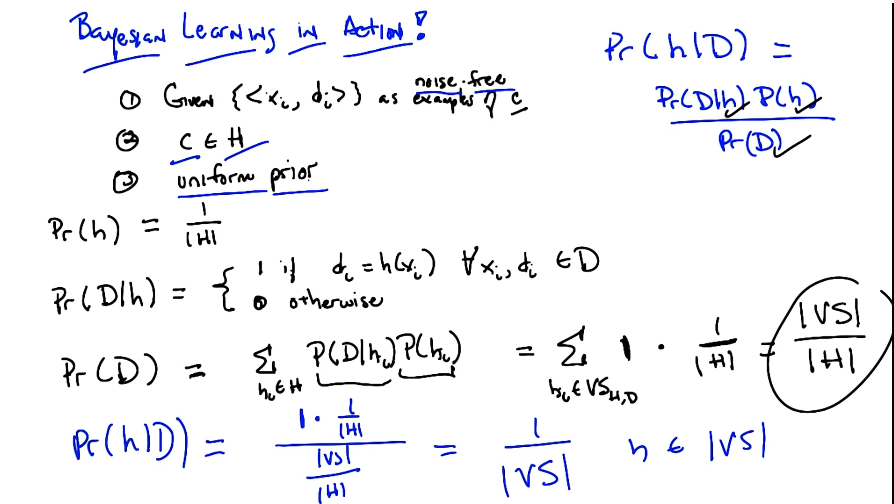 Bayesian Learning in Action!
Pr(h|D) =
Pr(D|h) P(h)
Pr(D)
① Given {<xᵢ, dᵢ>} as noise-free examples of c
② c ∈ H
③ uniform prior
Pr(h) = 1/|H|
Pr(D|h) = { 1 if dᵢ = h(xᵢ) ∀xᵢ, dᵢ ∈ D
0 otherwise
Pr(D) = Σ_{hᵢ∈H} P(D|hᵢ) P(hᵢ) = Σ_{hᵢ∈VS_{H,D}} 1 · 1/|H| = |VS|/|H|
Pr(h|D) = (1 · 1/|H|)/(|VS|/|H|) = 1/|VS| h ∈ |VS|